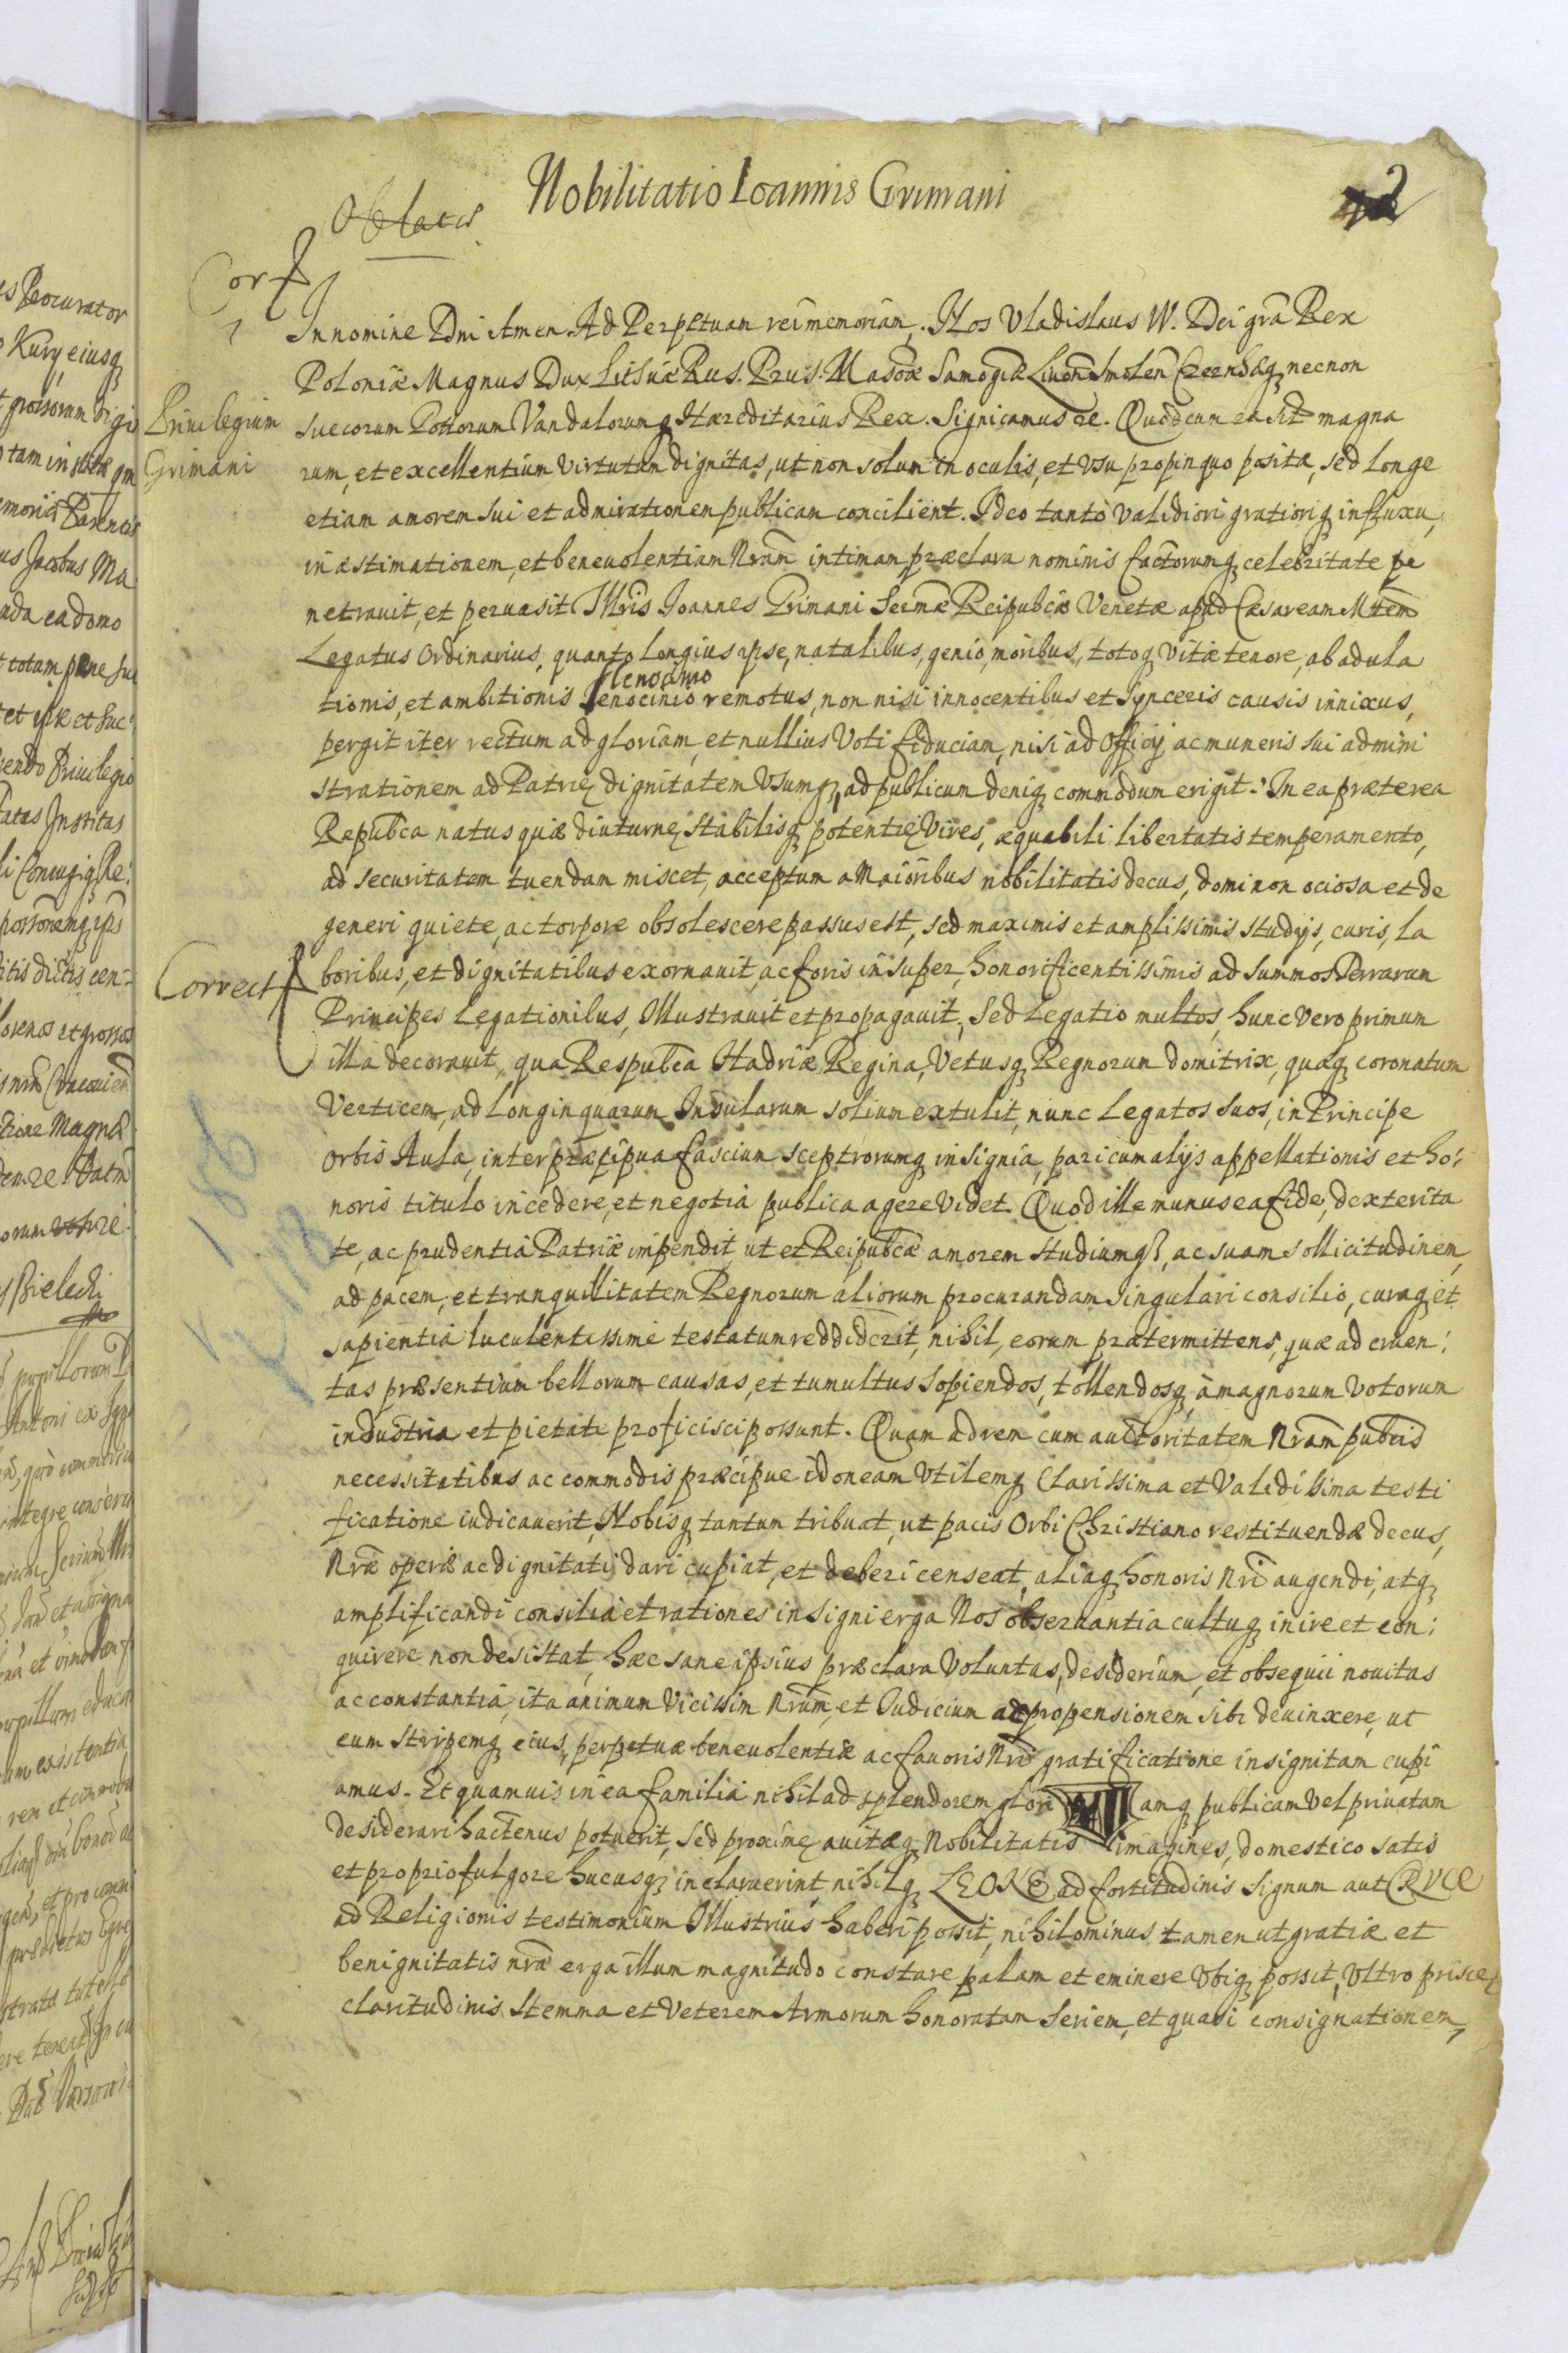 Nobilitatio Ioannis Grimani
2
Oblata
Cor
Privilegium
Grimani
Correct
In nomine Dni Amen. Ad Perpetuam rei memoriam. Nos Vladislaus IV. Dei grã Rex
Poloniæ Magnus Dux Lithuæ Rus. Prus. Masoæ Samogitiæ Livon Smolen Czernhq necnon
Suecorum Gottorum Vandalorumq Hæreditarius Rex. Signicamus re. Quod cum ea sit magna
rum, et excellentium virtutum dignitas, ut non solum in oculis, et usu propinquo posita, sed longe
etiam amorem sui et admirationem publicam concilient. Ideo tanto validiori gratioriq influxu,
in æstimationem, et benevolentiam Nram intimam præclara nominis factorumq celebritate pe
netravit, et pervasit Illris Joannes Grimani Sermæ Reipubcæ Venetæ apud Cæsaream Mttem
Legatus Ordinarius, quanto longius ipse, natalibus, genio, moribus, totoq vitæ tenore, ab adula
tionis, et ambitionis lenocinio remotus, non nisi innocentibus et synceris causis innixus,
pergit iter rectum ad gloriam, et nullius voti fiduciam, nisi ad officij ac muneris sui admini
strationem ad Patrię dignitatem usumq, ad publicum deniq commodum erigit. In ea præterea
Republca natus quæ diuturnę stabilisq potentię vires, æquabili libertatis temperamento,
ad securitatem tuendam miscet, acceptum a Maioribus nobilitatis decus, domi non ociosa et de
generi quiete, ac torpore obsolescere passus est, sed maximis et amplissimis studijs, curis, la
boribus, et dignitatibus exornavit, ac foris insuper, honorificentissimis ad summos Terrarum
Principes Legationibus, Illustravit et propagavit, Sed Legatio multos, hunc vero primum
illa decoravit, qua Respublca Hadriæ Regina, Vetusq Regnorum domitrix, quæq coronatum
Verticem, ad longinquarum Insularum solium extulit, nunc Legatos suos, in Principe
orbis Aula, inter præcipua fascium sceptrorumq insignia, pari cum alijs appellationis et ho:
noris titulo incedere, et negotia publica agere videt. Quod ille munus ea fide, dexterita
te, ac prudentia Patriæ impendit, ut et Reipubcæ amorem studiumq, ac suam sollicitudinem,
ad pacem, et tranquillitatem Regnorum aliorum procurandam singulari consilio, curaq et
sapientia luculentissime testatum reddiderit, nihil, eorum prætermittens, quæ ad cruen:
tas præsentium bellorum causas, et tumultus sopiendos, tollendosq, a magnorum votorum
industria et pietate proficisci possunt. Quam ad rem cum auctoritatem Nram pubcis
necessitatibus ac commodis præcipue idoneam utilemq Clarissima et Validissima testi
ficatione iudicaverit, Nobisq tantum tribuat, ut pacis Orbi Christiano restituendæ decus,
Nræ operæ ac dignitati dari cupiat, et deberi censeat, aliaq honoris Nri augendi, atq
amplificandi consilia et rationes insigni erga Nos observantia cultuq inire et con:
quirere non desistat, hæc sane ipsius præclara voluntas, desiderium, et obsequii novitas
ac constantia, ita animum vicissim Nrum, et Iudicium ac propensionem sibi devinxere, ut
eum stirpemq eius, perpetuæ benevolentiæ ac favoris Nri gratificatione insignitam cupi
amus. Et quamvis in ea familia nihil ad splendorem glori amq publicam vel privatam
desiderari hactenus potuerit, sed proximę avitæq Nobilitatis imagines, domestico satis
et proprio fulgore hucusq inclaruerint, nihilq LEONE ad fortitudinis signum aut CRUCE
ad Religionis testimonium Illustrius haberi possit, nihilominus tamen ut gratiæ et
benignitatis nræ erga illum magnitudo constare palam et eminere ubiq possit, ultro priscę
claritudinis Stemma et Veterem Armorum honoratam Seriem, et quasi consignationem,